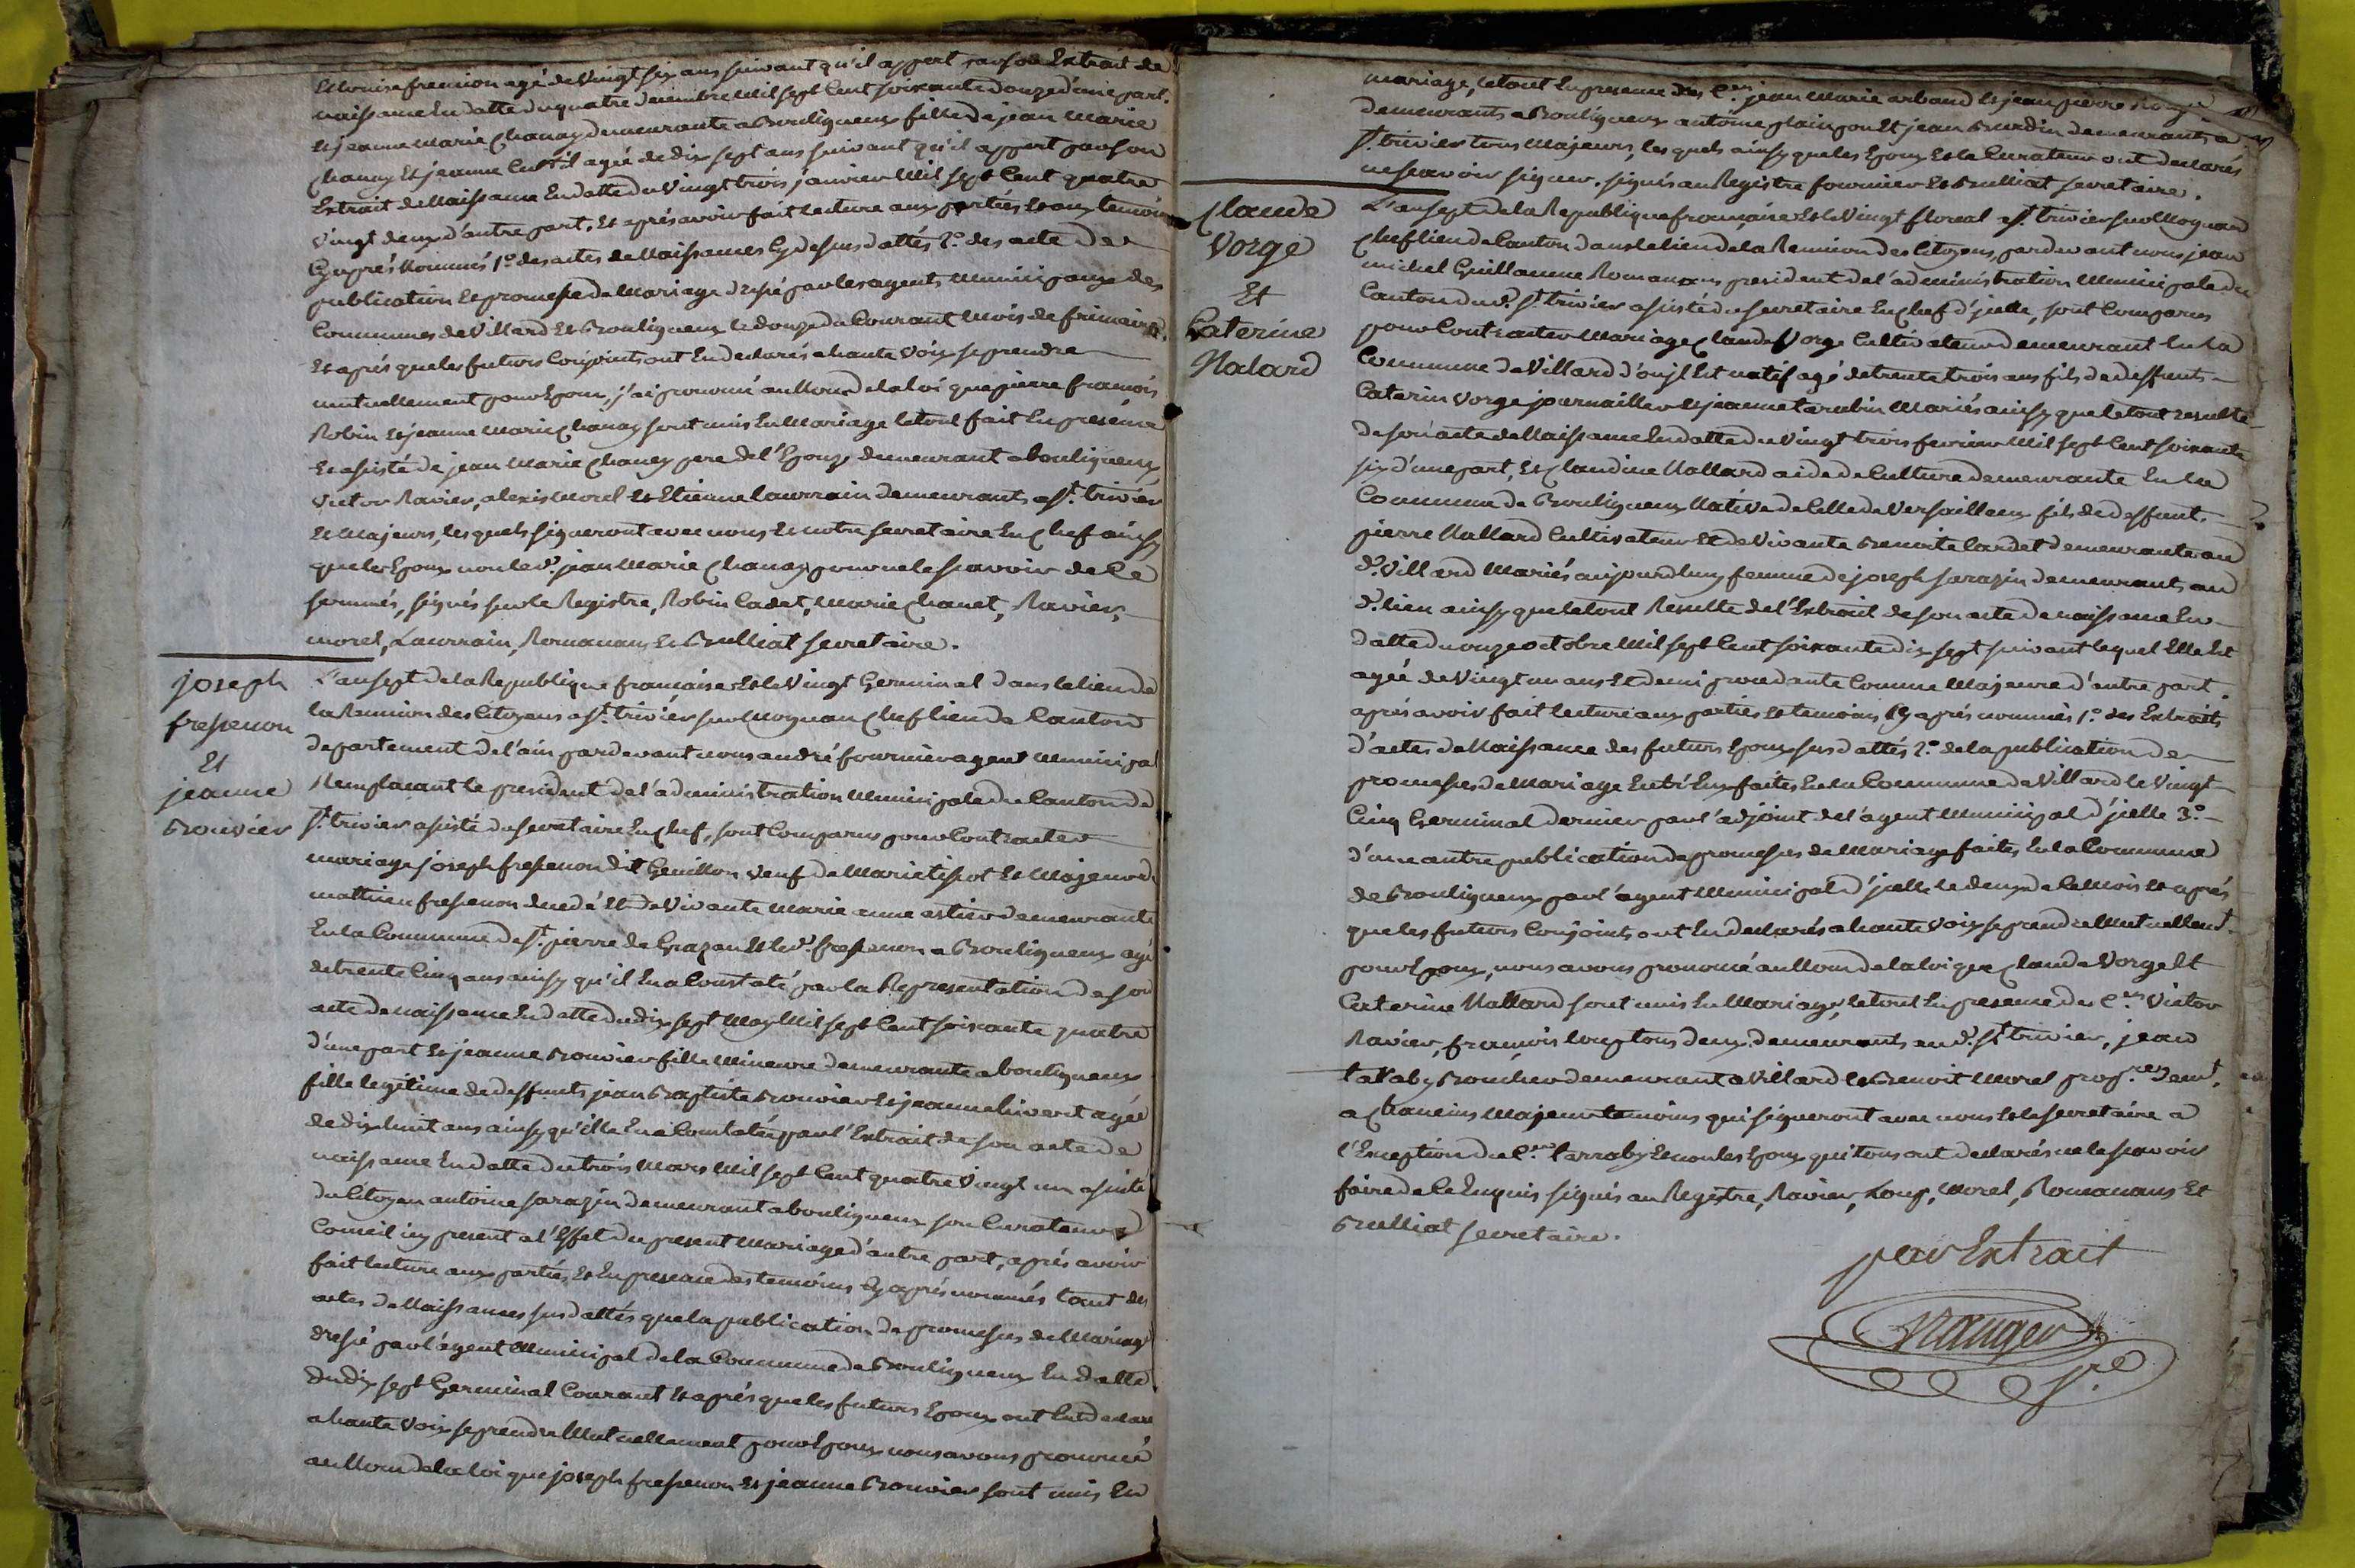 Et Louise fremion agé de Vingt six ans suivant qu'il appert par son Extrait de
naissance En datte du quatre decembre Mil sept Cent soixante douze d'une part.
Et jeanne Marie Chanay demeurante a Bouligneux fille de jean Marie
Chanay Et jeanne Cultil agée de dix sept ans suivant qu'il appert par son
Extrait de Naissance En datte du Vingt trois janvier Mil sept Cent quatre
Vingt deux d'autre part. Et aprés avoir fait lecture aux parties Et aux temoins
Cy aprés Nommés 1.º des actes de Naissances Cy dessus dattés 2.º des acte de
publication Et promesse de Mariage dressé par les agents Municipaux des
Communes de Villard Et Bouligneux le douze du Courant Mois de frimaire.
Et aprés que les futurs Conjoints ont Eu declarés a haute Voix se prendre
mutuellement pour Epoux, j'ai prononcé au Nom de la loi que pierre francois
Robin Et jeanne Marie Chanay sont unis En Mariage le tout fait En presence
Et assisté de jean Marie Chanay pere de l'Epouse demeurant a bouligneux
Victor Ravier, alexis Morel Et Etienne Laurrain demeurants a S.t trivier
Et Majeurs, les quels signeront avec nous Et notre secretaire En Chef ainsy
que les Epoux non le d.t jean Marie Chanay pour ne le sçavoir de Ce
sommés, signés sur le Registre, Robin Cadet, Marie Chanet, Ravier,
morel, Laurrain, Romanans Et Brulliat secretaire.
joseph
fressenon
Et
jeanne
Bouvier
L'an sept de la Republique francaise Et le Vingt Germinal dans le lieu de
la Reunion des Citoyens a S.t trivier sur Moignan Chef lieu de Canton
departement de l'ain pardevant nous andré fournier agent Municipal
Remplacant le president de l'administration Municipale du Canton de
S.t trivier assisté du secretaire En Chef, sont Comparus pour Contracter
mariage joseph fressenon dit Guillon veuf de Marie tissot Et Majeur de
mathieu fressenon decedé Et de Vivante Marie anne astier demeurante
En la Commune de S.t pierre de Grazan Et le d.t fressenon a Bouligneux agé
de trente Cinq ans ainsy qu'il En a Constaté par la Representation de son
acte de naissance En datte du dix sept May Mil sept Cent soixante quatre
d'une part Et jeanne Bouvier fille Mineure demeurante a bouligneux
fille legitime de deffunts jean Baptiste Bouvier Et jeanne huvert agée
de dix huit ans ainsy qu'elle En a Constaté par l'Extrait de son acte de
naissance En datte du trois Mars Mil sept Cent quatre Vingt un assisté
du Citoyen antoine sarazin demeurant a bouligneux son Curateur
Conseil icy present a l'Effet du present Mariage d'autre part, aprés avoir
fait lecture aux parties, Et En presence des temoins Cy aprés nommés tant des
actes de Naissances sus dattés que la publication de promesses de Mariage
dressé par l'agent Municipal de la Commune de Bouligneux En datte
du dix sept Germinal Courant Et aprés que les futurs Epoux ont Eu declaré
a haute Voix se prendre Mutuellement pour Epoux nous avons prononcé
au Nom de la loi que joseph fressenon Et jeanne Bouvier sont unis En
mariage, le tout En presence des C.ens jean Marie arbaud Et jean pierre
demeurants a Bouligneux antoine plainpon Et jean Burdin demeurants a
S.t trivier tous Majeurs, les quels ainsy que les Epoux Et le Curateur ont declarés
ne sçavoir signer. signés au Registre fournier Et Brulliat secretaire.
Claude
Vorge
Et
Caterine
Nalard
L'an sept de la Republique francaise Et le Vingt floreal a S.t trivier sur Moignand
Chef lieu de Canton dans le lieu de la Reunion des Citoyens, pardevant nous jean
michel Guillaume Romanans president de l'administration Municipale du
Canton du d.t S.t trivier assisté du secretaire En Chef d'jcelle, sont Comparus
pour Contracter Mariage Claude Vorge Cultivateur demeurant En la
Commune de Villard d'ou jl Est natif agé de trente trois ans fils de deffunts
Caterin Vorge journaillier Et jeanne tarubin Mariés ainsy que le tout resulte
de son acte de Naissance En datte du Vingt trois fevrier Mil sept Cent soixante
six d'une part, Et Claudine Nallard aide de Culture demeurante En la
Commune de Bouligneux Native de Celle de Versailleux fils de deffunt
pierre Nallard Cultivateur Et de Vivante Benoite Cardet demeurante au
d.t Villard Mariés aujourdhuy femme de joseph sarazin demeurant au
d.t lieu ainsy que le tout Resulte de l'Extrait de son acte de naissance En
datte du onze octobre Mil sept Cent soixante dix sept suivant lequel Elle Est
agée de Vingt un ans Et demi procedante Comme Majeure d'autre part.
aprés avoir fait lecture aux parties Et temoins Cy aprés nommés 1.º des Extraits
d'actes de Naissance des futurs Epoux sus dattés 2.º de la publication de
promesses de Mariage Entr'Eux faites En la Commune de Villard le Vingt
Cinq Germinal dernier par l'adjoint de l'agent Municipal d'jcelle 3.º
d'une autre publication de promesses de Mariage faites En la Commune
de Bouligneux par l'agent Municipal d'jcelle le deux de Ce Mois Et aprés
que les futurs Conjoints ont Eu declarés a haute Voix se prendre Mutuellem.t
pour Epoux, nous avons prononcé au Nom de la loi que Claude Vorge Et
Caterine Nallard sont unis En Mariage, le tout En presence des C.ens Victor
Ravier, françois Loup tous deux demeurants au d.t S.t trivier, jean
tarraby Boucher demeurant a Villard Et Benoit Morel prop.re dem.t
a Chaneins Majeurs temoins qui signeront avec nous Et le secretaire a
l'Exception du C.en tarraby Et non les Epoux qui tous ont declarés ne le sçavoir
faire de Ce Enquis signés au Registre, Ravier, Loup, Morel, Romanans Et
Brulliat secretaire.
par Extrait